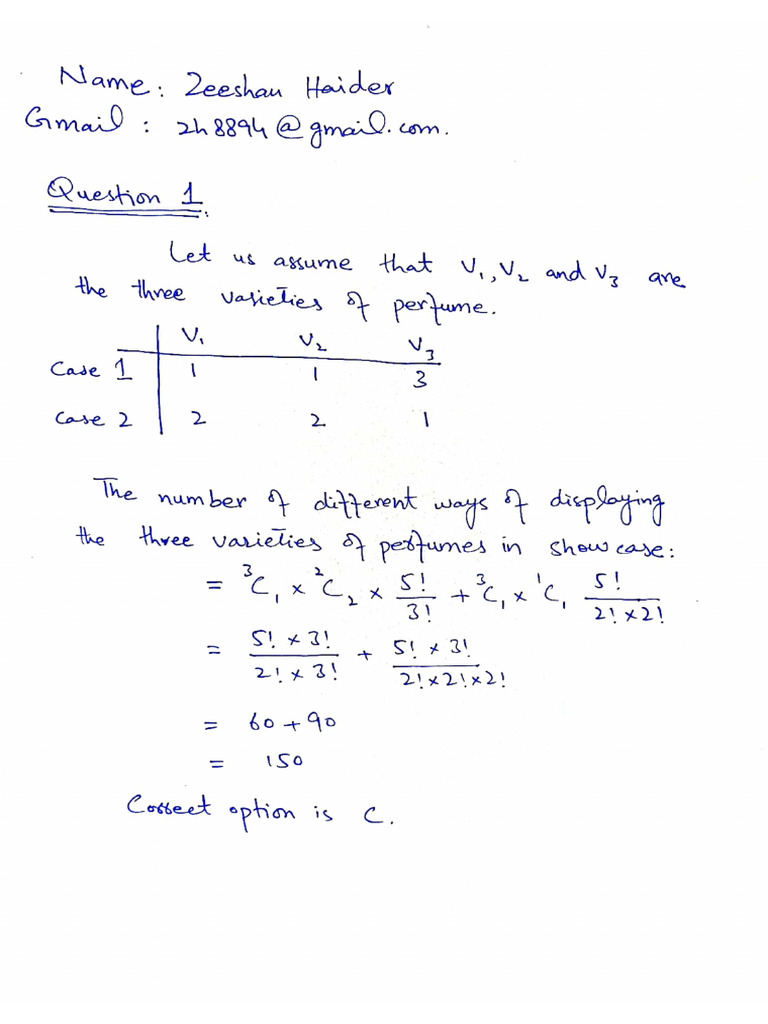 Name: Zeeshan Haider
Gmail : zh8894@gmail.com.
Question 1:
Let us assume that V₁, V₂ and V₃ are
the three varieties of perfume.
V₁ V₂ V₃
Case 1 1 1 3
Case 2 2 2 1
The number of different ways of displaying
the three varieties of perfumes in showcase:
= ³C₁ × ²C₂ × 5!/3! + ³C₁ × ¹C₁ 5!/(2! × 2!)
= (5! × 3!)/(2! × 3!) + (5! × 3!)/(2! × 2! × 2!)
= 60 + 90
= 150
Correct option is C.